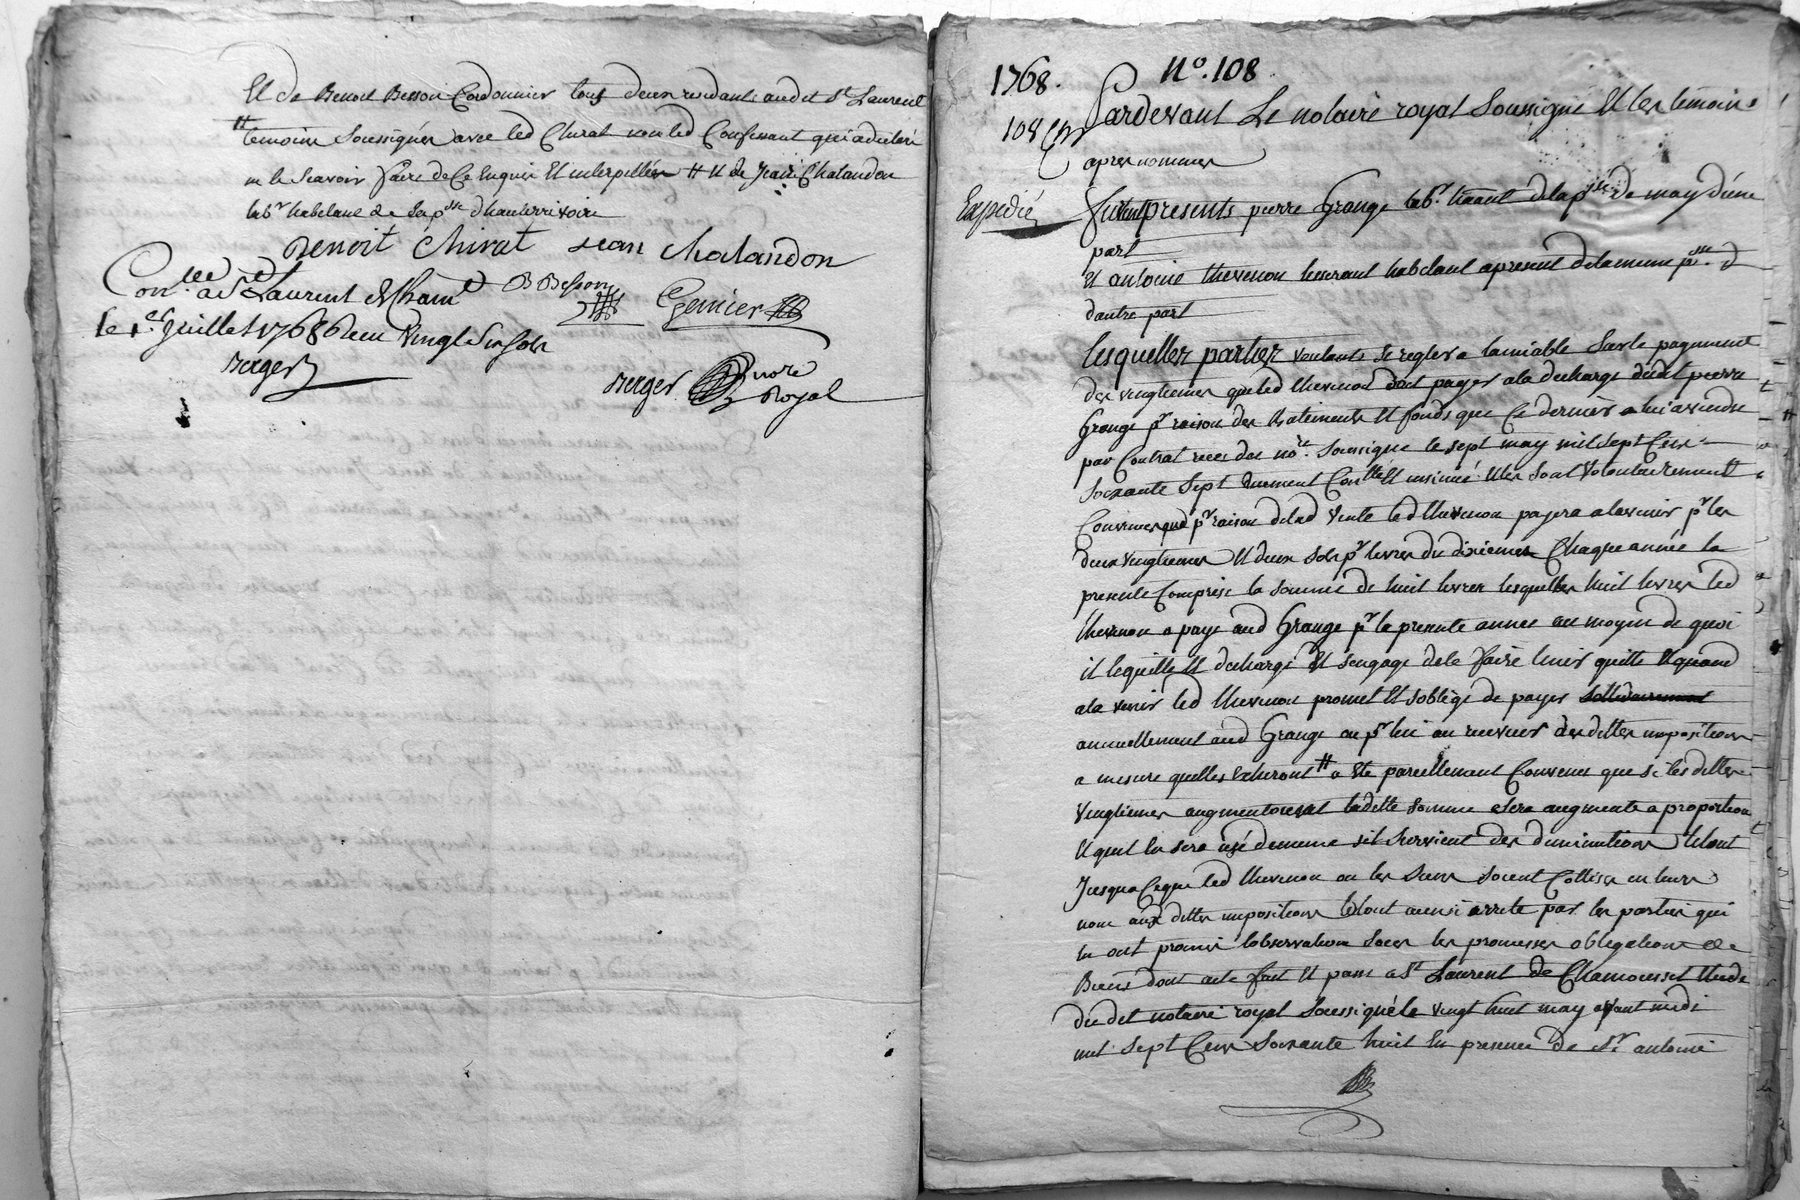 Et de Benoit Besson Cordonnier tous deux residants audit St Laurent
temoins soussignés avec led Chirat non led Confessant qui a declaré
ne le scavoir faire de Ce Enquis Et interpellés # Et de Jean Chalandon
labr habitant de la psse d'hauterivoire
Benoit Chirat Jean Chalandon
Conllé a St Laurent de Chamt B Besson Grenier
le 1er Juillet 1768 Recu vingt six sols
Berger
Berger nore Royal
1768. No. 108
Pardevant Le notaire royal Soussigné Et les temoins
108
apres nommés
Expedié
furent presents pierre Grange labr. hãant de la psse de may d'une
part
Et antoine thevenon tisserant habitant apresent de la meme psse. d
dautre part
lesquelles parties voulants se regler a lamiable sur le payement
des vingtiemes que led thevenon doit payer a la decharge dudit pierre
Grange pr raison des Batiments Et fonds que Ce dernier a lui a vendu
par Contrat recu du nore. Soussigné le sept may mil sept Cens
soixante sept duement Conllé Et insinué Elles sont volontairement
Convenues que pr raison de lad vente led thevenon payera a lavenir pr les
deux vingtiemes Et deux sols pr livres du dixieme Chaque année la
presente Comprise la somme de huit livres lesquelles huit livres led
thevenon a payé aud Grange pr la presente année au moyen de quoi
il le quitte Et decharge Et sengage de le faire tenir quitte Et quand
a la venir led thevenon promet Et soblige de payer
annuellement aud Grange ou pr lui au receveur desdittes impositions
a mesure quelles Echeront # a Eté pareillement Convenu que si lesdittes
vingtiemes augmentoient laditte somme sera augmenté a proportion
Et quil En sera usé de meme sil survient des diminutions le tout
Jusqua Ceque led thevenon ou les siens soient Cottisés en leurs
nom aux dittes impositions le tout ainsi arreté par les parties qui
En ont promis lobservation sous les promesses obligations de
Biens dont acte fait Et passé a St Laurent de Chamousset Etude
du dit notaire royal Soussigné le vingt huit may avant midi
mil sept Cens soixante huit En presence de Sr antoine